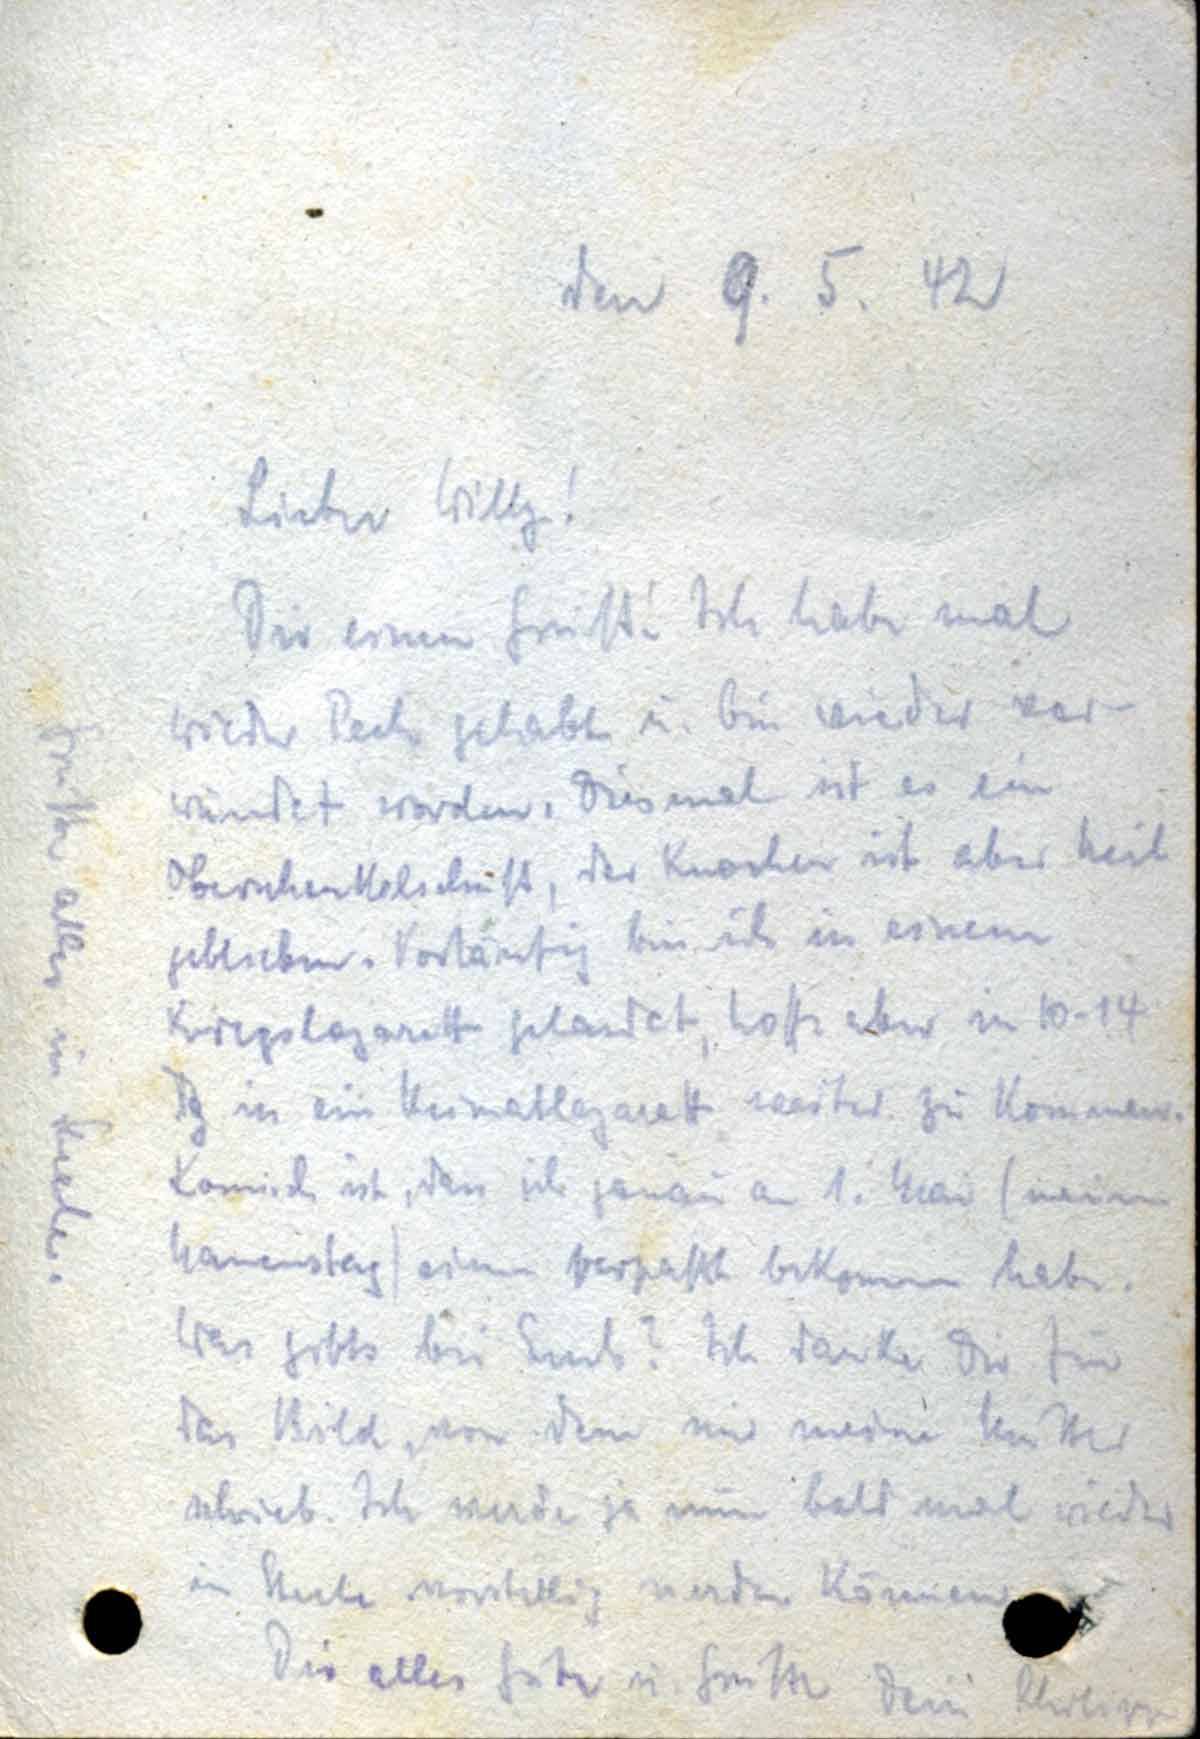 den 9. 5. 42
Lieber Willy!
Dir einen Gruß! Ich habe mal
wieder Pech gehabt u. bin wieder ver-
wundet worden. Diesmal ist es ein
Oberschenkelschuß, der Knochen ist aber heil
geblieben. Vorläufig bin ich in einem
Kriegslazarett gelandet, hoffe aber in 10-14
Tg in ein Heimatlazarett weiter zu kommen.
Komisch ist, dass ich genau am 1. Mai (meinem
Namenstag) einen verpaßt bekommen habe.
Was gibts bei Euch? Ich danke Dir für
das Bild, von dem mir meine Mutter
schrieb. Ich werde ja nun bald mal wieder
in vorstellig werden können
Dir alles Gute u. Grüße Dein Philipp
Grüße alles in